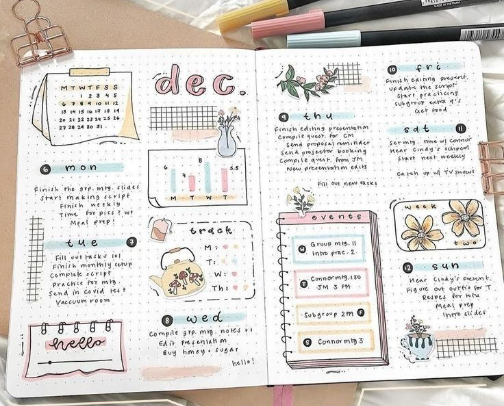 dec.
M T W T F S S
1 2 3 4 5
6 7 8 9 10 11 12
13 14 15 16 17 18 19
20 21 22 23 24 25 26
27 28 29 30 31
6 mon
Finish the grp. mtg. slides
Start making script
Finish weekly
Time for pics?
Meal prep!
tue 7
Finish monthly setup
Complete script
Practice for mtg.
Send in covid test
Vaccuum room
hello
M T W T
track
M:
T:
W:
Th:
8 wed
Compile grp. mtg. notes
Edit presentation
Buy honey + sugar
hello!
9 thu
Finish editing presentation
Compile quest. for CM
Send proposal reminder
Send projector booking
Compile quest. from JM
New presentation edits
Fill out new tasks
events
Group mtg. 11
Intro prac. 2
Connor mtg. 1:30
JM 3 PM
Subgroup 2PM
Connor mtg 3
10 fri
Finish editing present.
Update the script
Start practicing
Subgroup
Get food
sat 11
Set mtg. time w/ Connor
Hear Cindy's
Start next weekly
Catch up w/ TV shows!
week
two
12 sun
Hear Cindy's present.
Figure out outfit for T
Recipes for
Meal prep
Intro slides